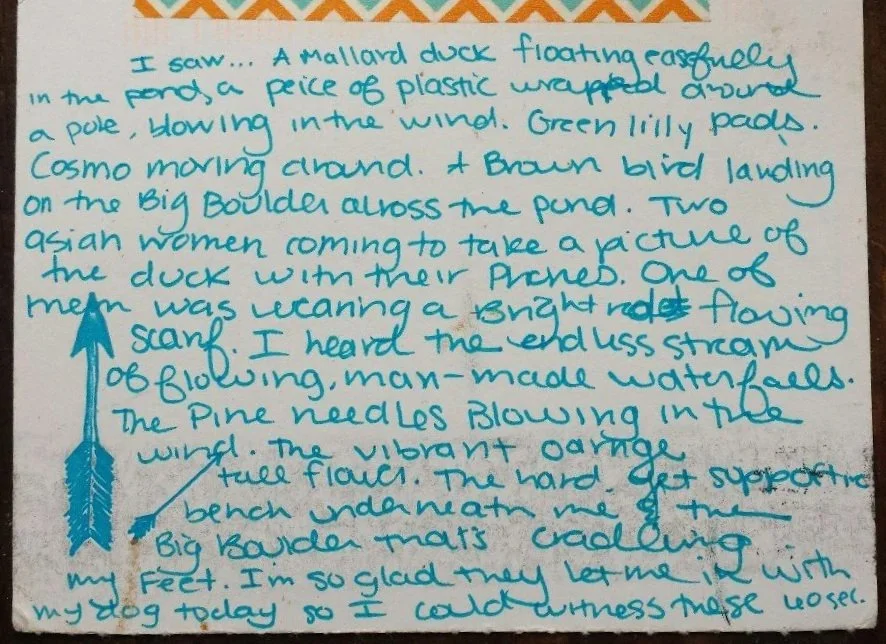 I saw... A Mallard duck floating easefully
in the pond, a peice of plastic wrapped around
a pole, blowing in the wind. Green lilly pads.
Cosmo moving around. A Brown bird landing
on the Big Boulder across the pond. Two
asian women coming to take a picture of
the duck with their Phones. One of
them was wearing a Bright red flowing
scarf. I heard the endless stream
of flowing, man-made waterfalls.
The Pine needles Blowing in the
wind. The vibrant oarnge
tall flower. The hard, yet supportive
bench underneath me & the
Big Boulder that's cradling
my Feet. I'm so glad they let me in with
my dog today so I could witness these